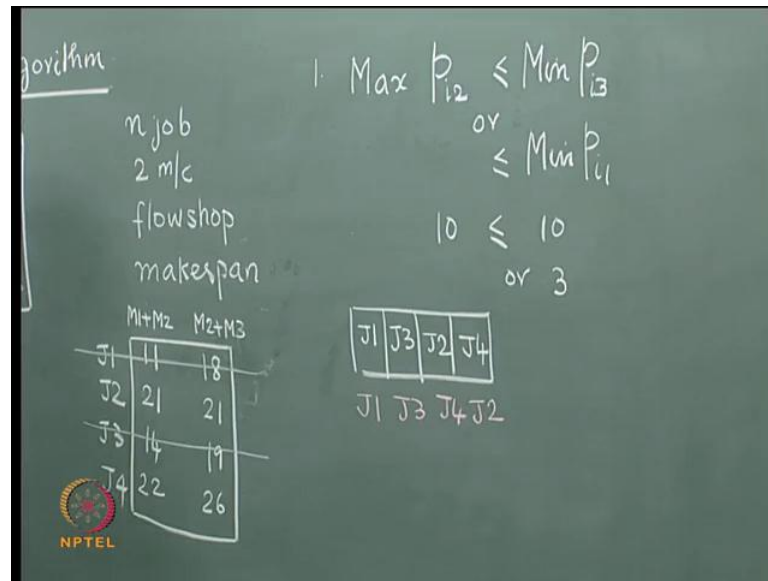 gorithm
n job
2 m/c
flowshop
makespan
M1+M2 M2+M3
J1 11 18
J2 21 21
J3 14 19
J4 22 26
1. Max Pi2 ≤ Min Pi3
or
≤ Min Pi1
10 ≤ 10
or 3
J1 J3 J2 J4
J1 J3 J4 J2
NPTEL